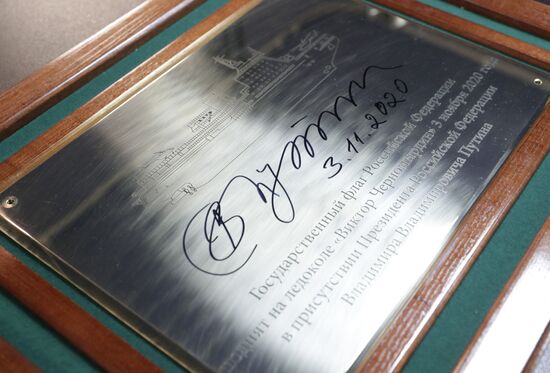 В Путин
3.11.2020
Государственный флаг Российской Федерации
поднят на ледоколе «Виктор Черномырдин» 3 ноября 2020 года
в присутствии Президента Российской Федерации
Владимира Владимировича Путина